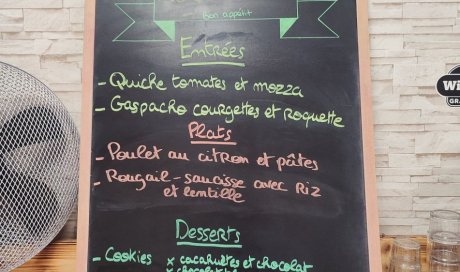 Bon appétit
Entrées
- Quiche tomates et mozza
- Gaspacho courgettes et roquette
Plats
- Poulet au citron et pâtes
- Rougail-saucisse avec Riz
et lentille
Desserts
- Cookies x cacahuètes et chocolat